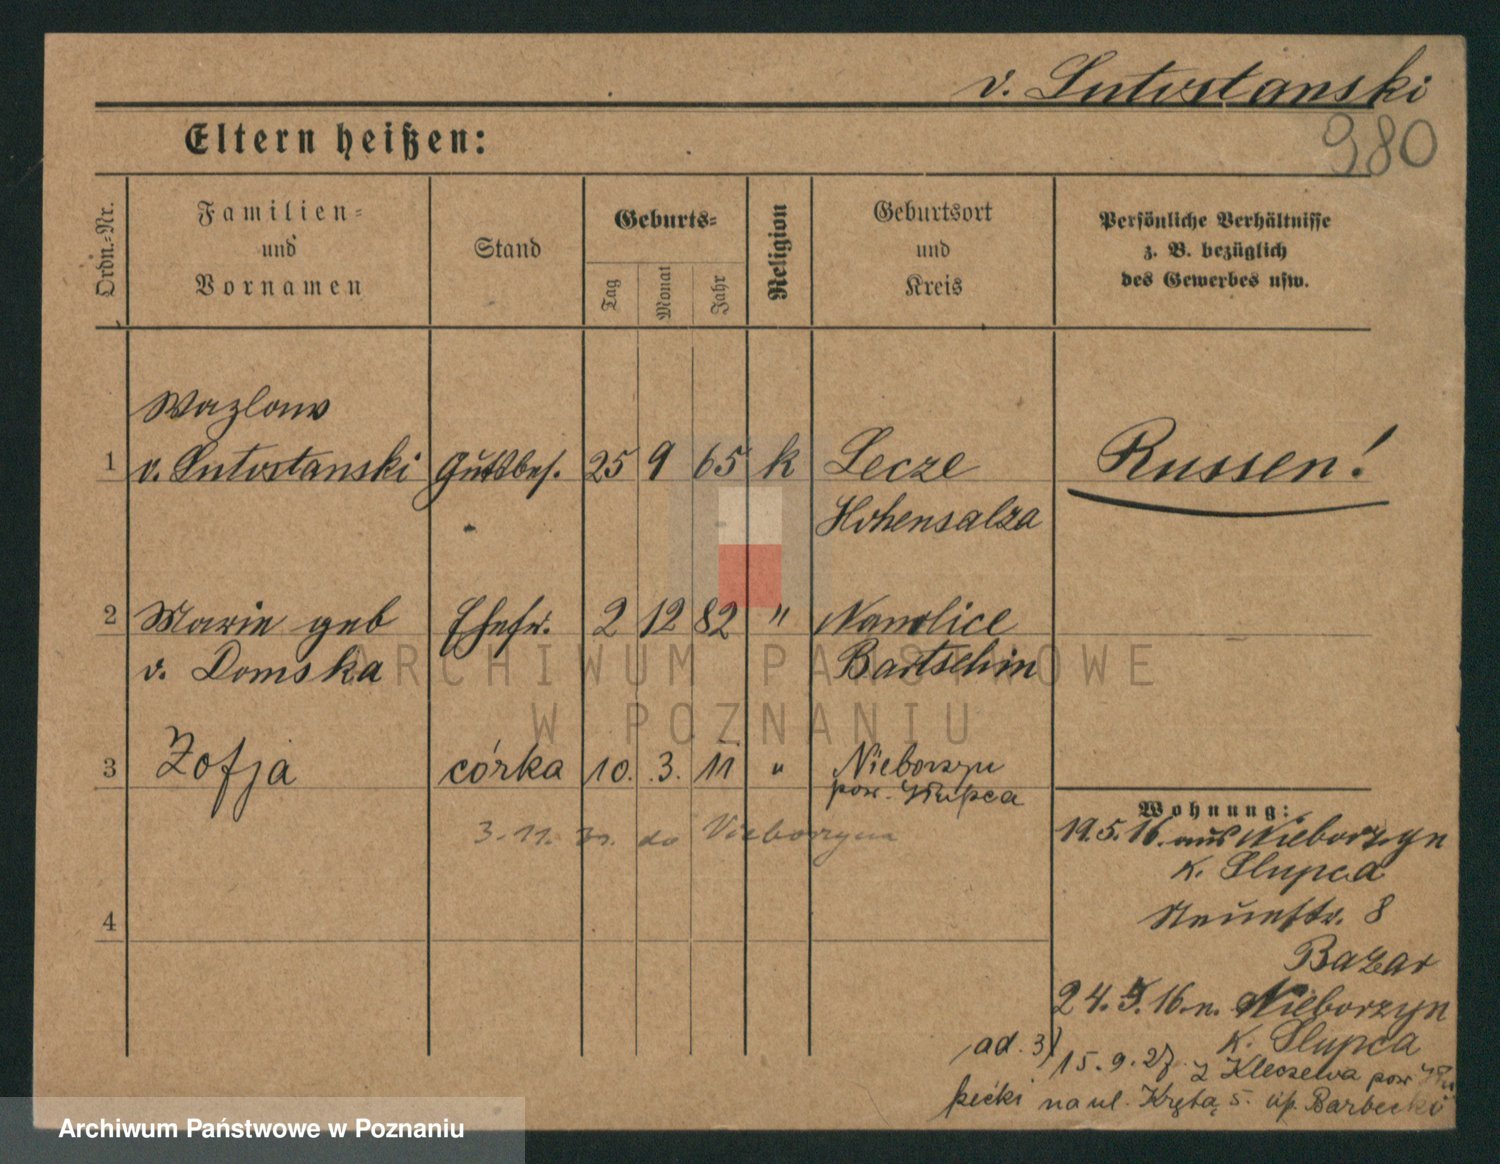 v. Lutostanski
980
Eltern heißen:
Ordn.-Nr.
Familien-
und
Vornamen
Stand
Geburts-
Tag
Monat
Jahr
Religion
Geburtsort
und
Kreis
Persönliche Verhältnisse
z. B. bezüglich
des Gewerbes usw.
Wazlaw
1 v. Lutostanski Gutsbes. 25 9 65 k Lecze Russen!
Hohensalza
2 Marie geb Ehefr. 2 12 82 " Nanolice
v. Domska Bartschin
3 Zofja córka 10. 3. 11 " Nieborzyn
pow. Słupca
3.11. do Nieborzyna
4
Wohnung:
19.5.16. aus Nieborzyn
K. Slupca
Neuestr. 8
Bazar
24.5.16. n. Nieborzyn
K. Slupca
ad. 3) 15.9.27. z Kleczewa pow
na ul. Krętą 5. Barbecki
ARCHIWUM PAŃSTWOWE
W POZNANIU
Archiwum Państwowe w Poznaniu